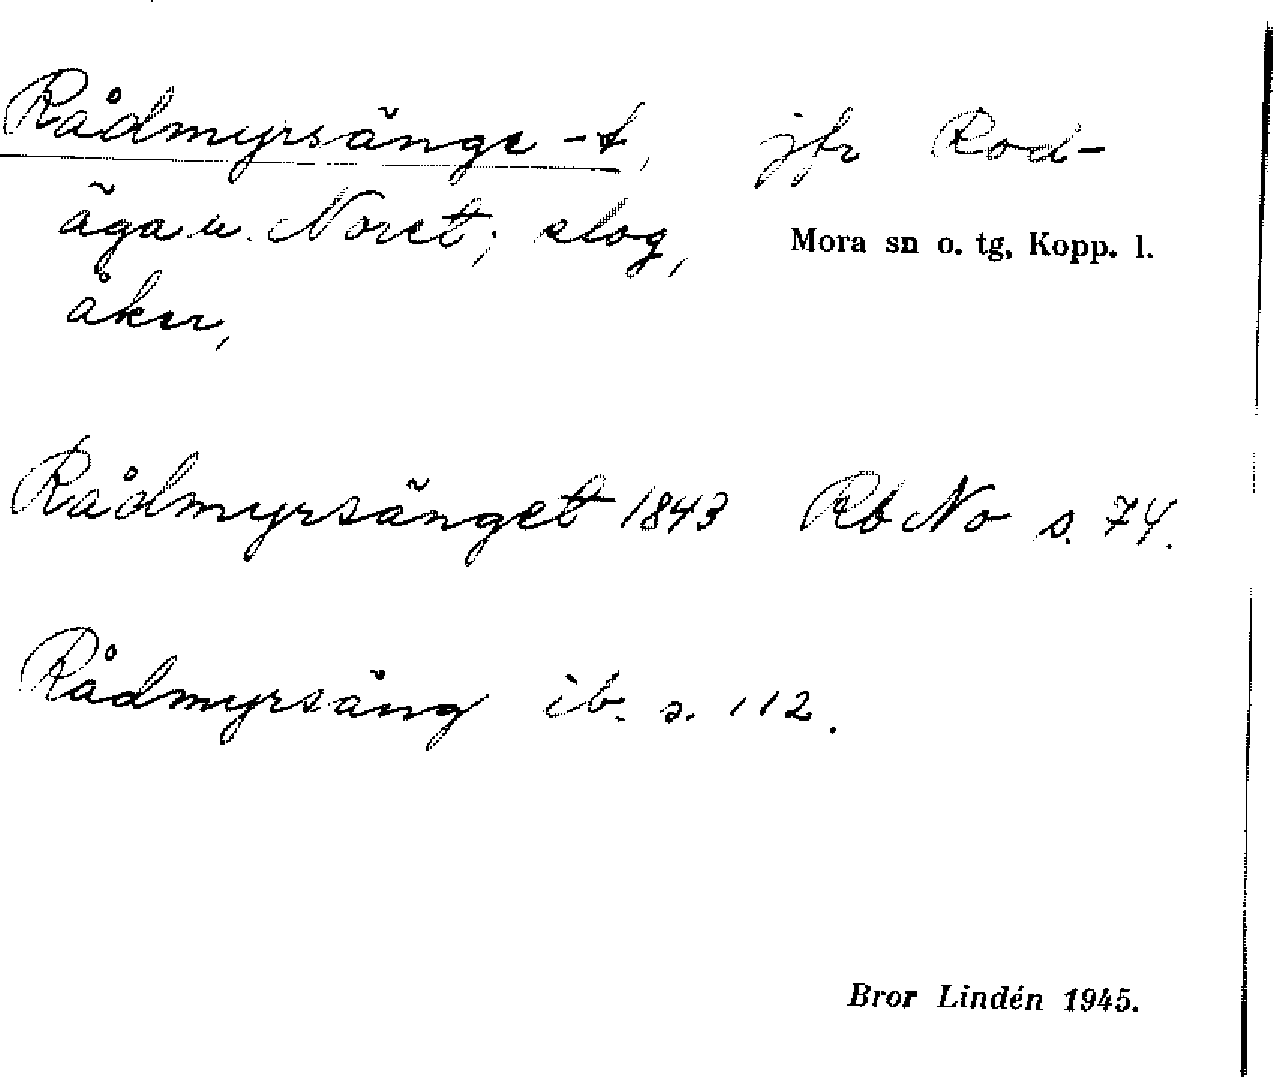 Rådmyrsänge -t, jfr Rod-
äga u. Noret; slog,
Mora sn o. tg, Kopp. l.
åker,
Rådmyrsänget 1843 Rb No s. 74.
Rådmyrsäng ib. s. 112.
Bror Lindén 1945.